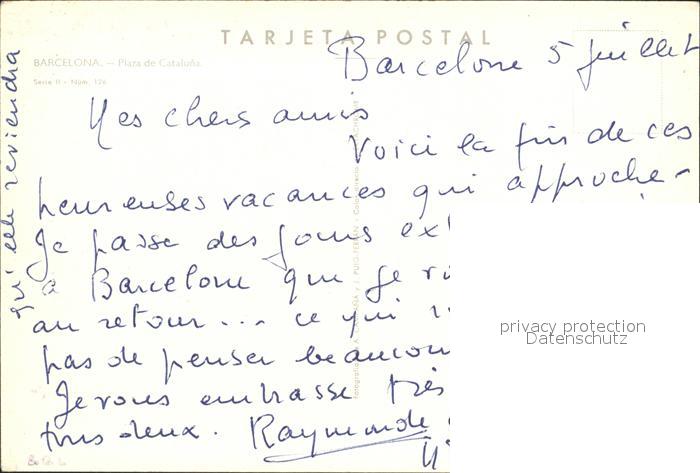 TARJETA POSTAL
BARCELONA. – Plaza de Cataluña.
Serie II - Núm. 126
Barcelone 5 juillet
Mes chers amis
Voici la fin de ces
heureuses vacances qui approche -
Je passe des jours
à Barcelone que je
au retour... ce qui
pas de penser
Je vous embrasse très
tous deux. Raymonde
qu'elle reviendra
privacy protection
Datenschutz